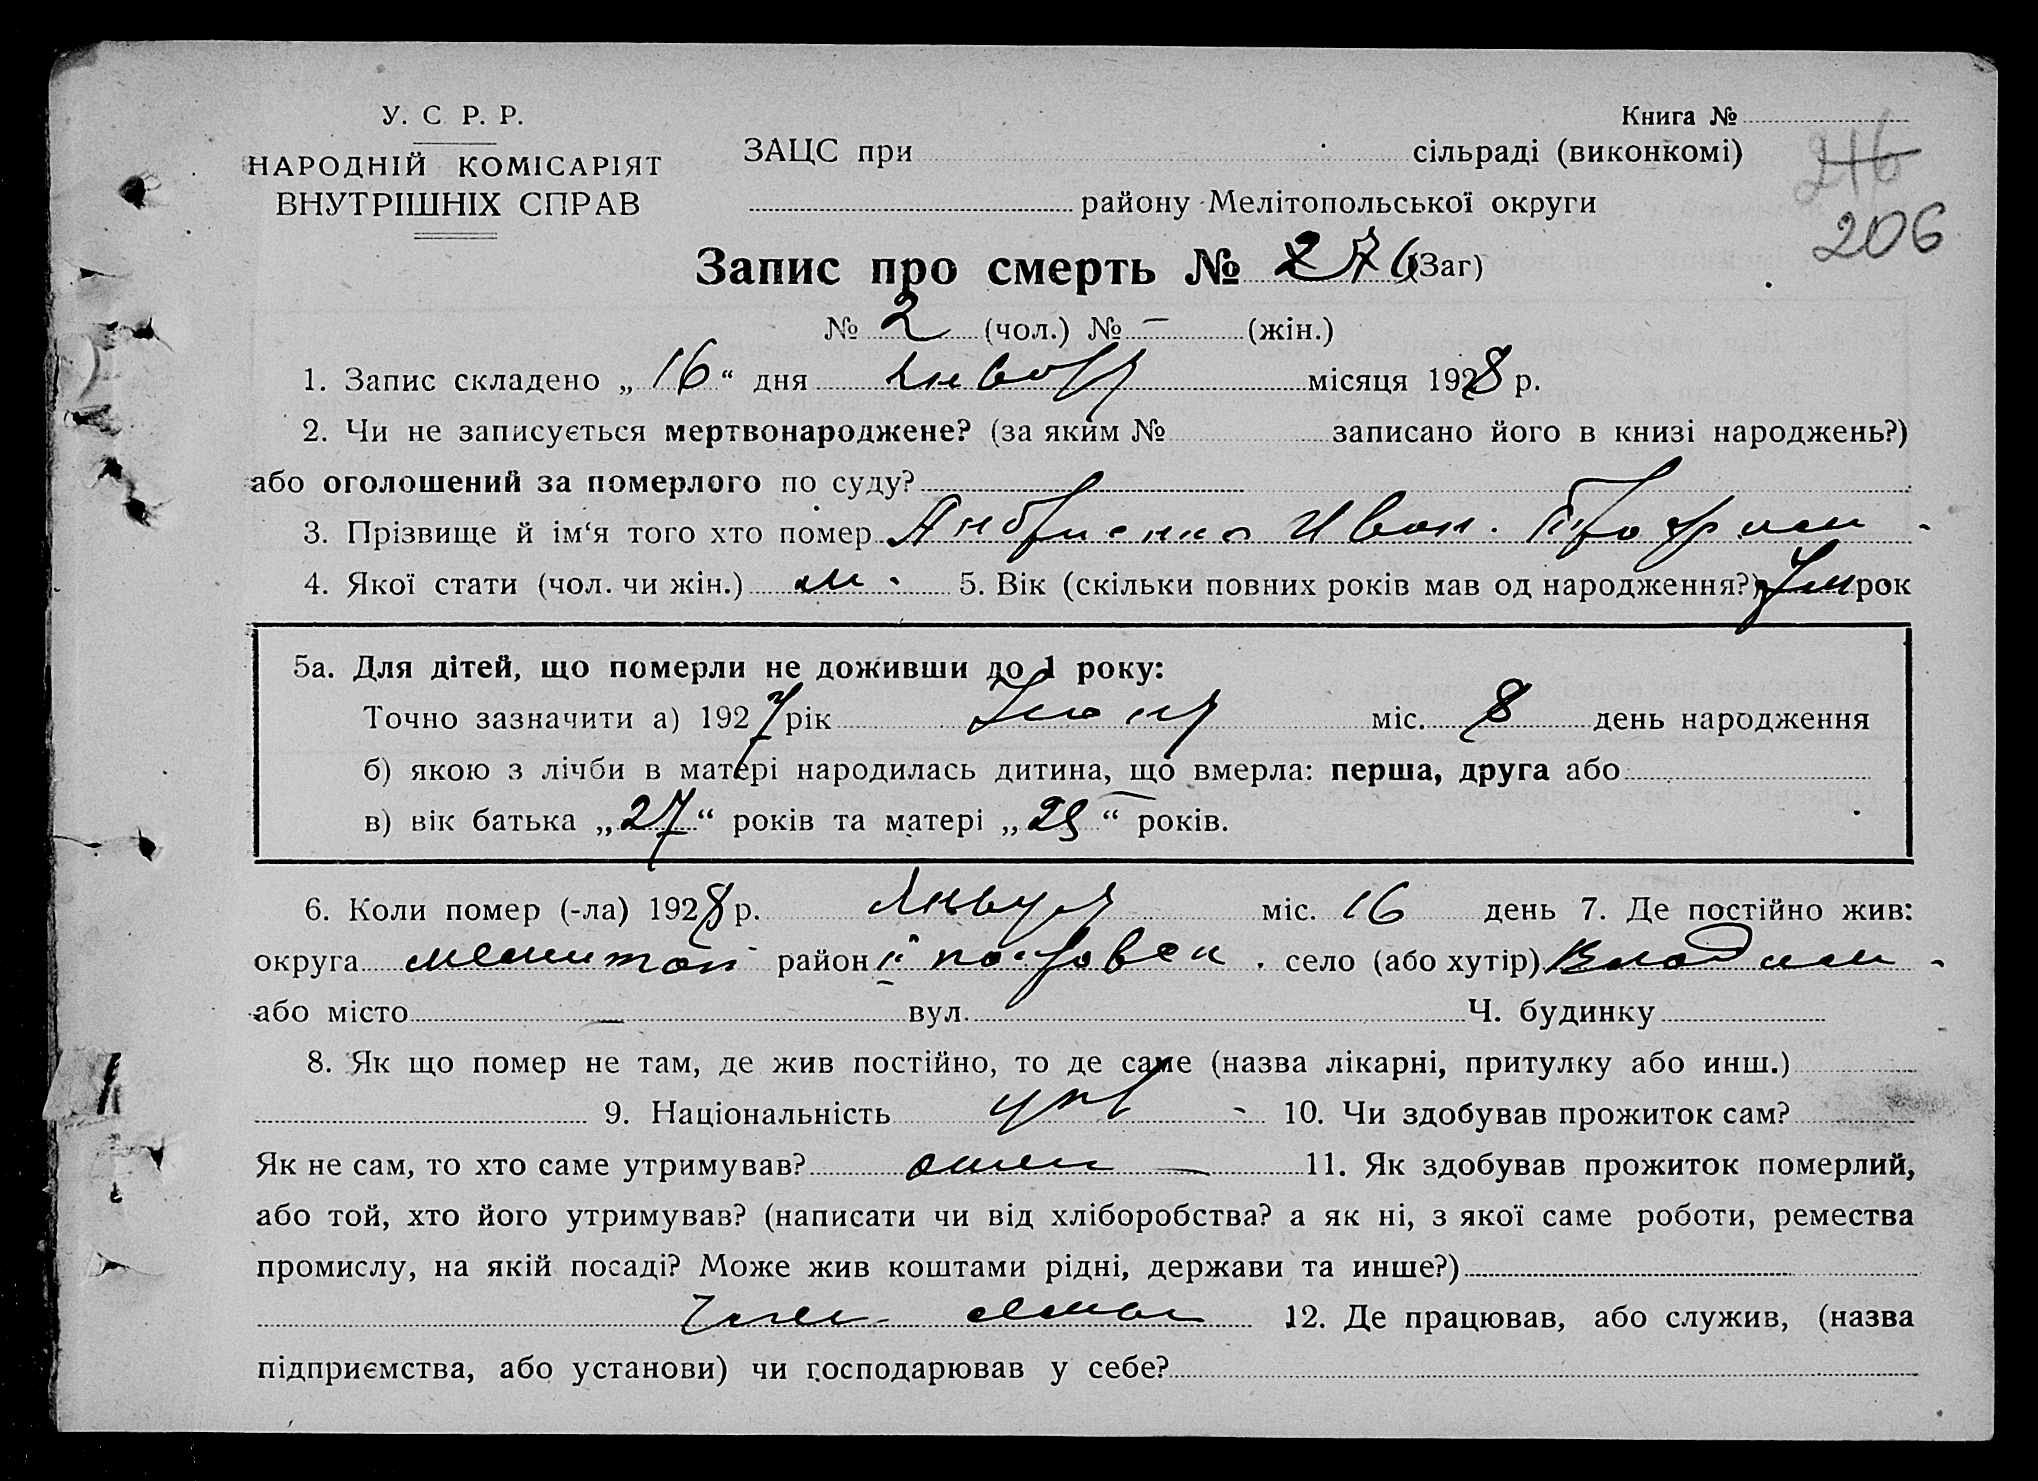 У. С. Р. Р.
НАРОДНІЙ КОМІСАРІЯТ
ВНУТРІШНІХ СПРАВ
Книга №
ЗАЦС при сільраді (виконкомі)
216
району Мелітопольської округи
206
Запис про смерть № 6 (Заг)
№ 2 (чол.) № – (жін.)
1. Запис складено „16“ дня января місяця 1928 р.
2. Чи не записується мертвонароджене? (за яким № записано його в книзі народжень?)
або оголошений за померлого по суду?
3. Прізвище й ім‘я того хто помер Иван. Трофим
4. Якої стати (чол. чи жін.) м. 5. Вік (скільки повних років мав од народження?) 7м рок
5а. Для дітей, що померли не доживши до 1 року:
Точно зазначити а) 1927 рік міс. 8 день народження
б) якою з лічби в матері народилась дитина, що вмерла: перша, друга або
в) вік батька „27“ років та матері „25“ років.
6. Коли помер (-ла) 1928 р. января міс. 16 день 7. Де постійно жив:
округа мелитоп район село (або хутір) Владим
або місто — вул. Ч. будинку
8. Як що помер не там, де жив постійно, то де саме (назва лікарні, притулку або инш.)
9. Національність укр 10. Чи здобував прожиток сам?
Як не сам, то хто саме утримував? 11. Як здобував прожиток померлий,
або той, хто його утримував? (написати чи від хліборобства? а як ні, з якої саме роботи, ремества
промислу, на якій посаді? Може жив коштами рідні, держави та инше?)
12. Де працював, або служив, (назва
підприємства, або установи) чи господарював у себе?